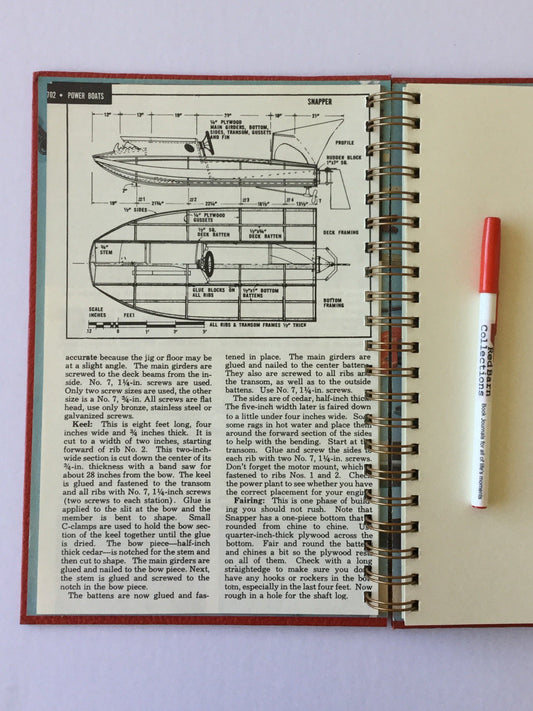 702 • POWER BOATS
SNAPPER
12" 13" 18" 29" 18" 21"
¼" PLYWOOD
MAIN GIRDERS, BOTTOM,
SIDES, TRANSOM, GUSSETS
AND FIN
PROFILE
RUDDER BLOCK
1"x7" SQ.
18" 21¾" 22¼" 18½" 13½"
½" SIDES
¼" PLYWOOD
GUSSETS
½" SQ.
DECK BATTEN
DECK BATTEN
DECK FRAMING
¾"
STEM
GLUE BLOCKS ON
ALL RIBS
½"x1" BOTTOM
BATTENS
BOTTOM
FRAMING
SCALE
INCHES FEET
12 6 0 1' 3'
ALL RIBS & TRANSOM FRAMES ½" THICK
accurate because the jig or floor may be
at a slight angle. The main girders are
screwed to the deck beams from the in-
side. No. 7, 1¼-in. screws are used.
Only two screw sizes are used, the other
size is a No. 7, ¾-in. All screws are flat
head, use only bronze, stainless steel or
galvanized screws.
Keel: This is eight feet long, four
inches wide and ¾ inches thick. It is
cut to a width of two inches, starting
forward of rib No. 2. This two-inch-
wide section is cut down the center of its
¾-in. thickness with a band saw for
about 28 inches from the bow. The keel
is glued and fastened to the transom
and all ribs with No. 7, 1¼-inch screws
(two screws to each station). Glue is
applied to the slit at the bow and the
member is bent to shape. Small
C-clamps are used to hold the bow sec-
tion of the keel together until the glue
is dried. The bow piece—half-inch
thick cedar—is notched for the stem and
then cut to shape. The main girders are
glued and nailed to the bow piece. Next,
the stem is glued and screwed to the
notch in the bow piece.
The battens are now glued and fas-
tened in place. The main girders are
glued and nailed to the center batten
They also are screwed to all ribs an
the transom, as well as to the outside
battens. Use No. 7, 1¼-in. screws.
The sides are of cedar, half-inch thick
The five-inch width later is faired down
to a little under four inches wide. Soa
some rags in hot water and place them
around the forward section of the sides
to help with the bending. Start at t
transom. Glue and screw the sides to
each rib with two No. 7, 1¼-in. screws.
Don't forget the motor mount, which
fastened to ribs Nos. 1 and 2. Chec
the power plant to see whether you have
the correct placement for your engin
Fairing: This is one phase of build
ing you should not rush. Note that
Snapper has a one-piece bottom that
rounded from chine to chine. Us
quarter-inch-thick plywood across the
bottom. Fair and round the batten
and chines a bit so the plywood rest
on all of them. Check with a long
straightedge to make sure you don
have any hooks or rockers in the bot
tom, especially in the last four feet. Now
rough in a hole for the shaft log.
Red Barn
Collections
Book Journals for all of life's moments